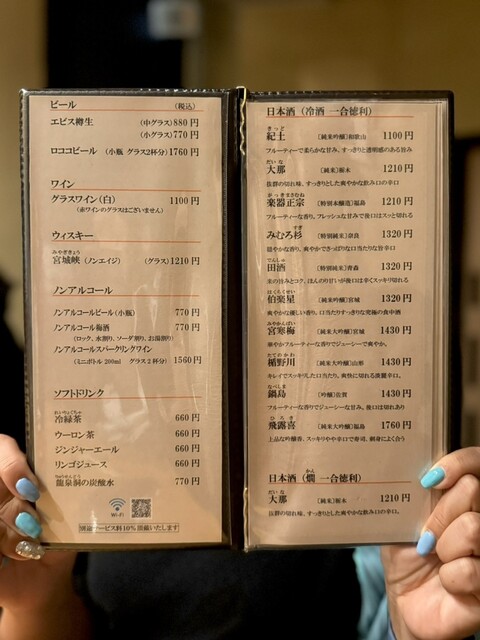 ビール (税込)
エビス樽生 (中グラス)880円
(小グラス)770円
ロココビール (小瓶 グラス2杯分)1760円
ワイン
グラスワイン(白) 1100円
(赤ワインのグラスはございません)
ウィスキー
みやぎきょう
宮城峡 (ノンエイジ) (グラス)1210円
ノンアルコール
ノンアルコールビール(小瓶) 770円
ノンアルコール梅酒 770円
(ロック、水割り、ソーダ割り、お湯割り)
ノンアルコールスパークリングワイン
(ミニボトル 200ml グラス2杯分) 1560円
ソフトドリンク
れいりょくちゃ
冷緑茶 660円
ウーロン茶 660円
ジンジャーエール 660円
リンゴジュース 660円
りゅうせんどう
龍泉洞の炭酸水 770円
Wi-Fi
別途サービス料10%頂戴いたします
日本酒 (冷酒 一合徳利)
きっど
紀土 〔純米吟醸〕和歌山 1100円
フルーティーで柔らかな甘み。すっきりと透明感のある旨み
だいな
大那 〔純米〕栃木 1210円
抜群の切れ味。すっきりとした爽やかな飲み口の辛口
がっきまさむね
楽器正宗 〔特別本醸造〕福島 1210円
フルーティーな香り。フレッシュな甘みで後口はスッと切れる
すぎ
みむろ杉 〔特別純米〕奈良 1320円
穏やかな香り。爽やかでさっぱりな口当たりな旨辛口
でんしゅ
田酒 〔特別純米〕青森 1320円
米の旨みとコク。ほんのり甘いが後口は辛くスッキリ切れる
はくらくせい
伯楽星 〔純米吟醸〕宮城 1320円
爽やかな優しい香り。口当たりすっきりな究極の食中酒
みやかんばい
宮寒梅 〔純米大吟醸〕宮城 1430円
華やかフルーティーな香りでジューシーで爽やか。
たてのかわ
楯野川 〔純米大吟醸〕山形 1430円
キレイでスッキリした口当たり。爽快に切れる淡麗辛口。
なべしま
鍋島 〔吟醸〕佐賀 1430円
フルーティーな香りでジューシーな甘み。後口は切れあり
ひろき
飛露喜 〔純米大吟醸〕福島 1760円
上品な吟醸香。スッキリやや辛口で寿司、刺身によく合う
かん
日本酒 (燗 一合徳利)
だいな
大那 〔純米〕栃木 1210円
抜群の切れ味。すっきりとした爽やかな飲み口の辛口。